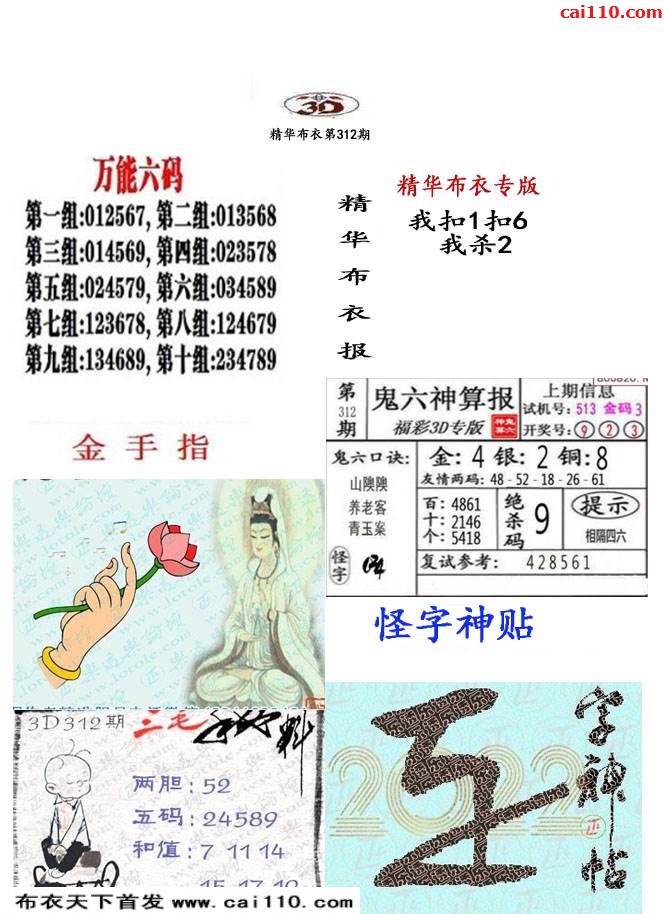 cai110.com
3D
精华布衣第312期
万能六码
第一组:012567, 第二组:013568
第三组:014569, 第四组:023578
第五组:024579, 第六组:034589
第七组:123678, 第八组:124679
第九组:134689, 第十组:234789
精华布衣报
精华布衣专版
我扣1扣6
我杀2
金手指
第312期
鬼六神算报
福彩3D专版
上期信息
试机号: 513 金码 3
开奖号: 9 2 3
鬼六口诀:
山隩隩
养老客
青玉案
怪字
金: 4 银: 2 铜: 8
友情两码: 48-52-18-26-61
百: 4861
十: 2146
个: 5418
绝杀码 9
提示
相隔四六
复试参考: 428561
怪字神贴
3D312期
三毛
两胆: 52
五码: 24589
和值: 7 11 14
字神帖
2022
正
布衣天下首发 www.cai110.com